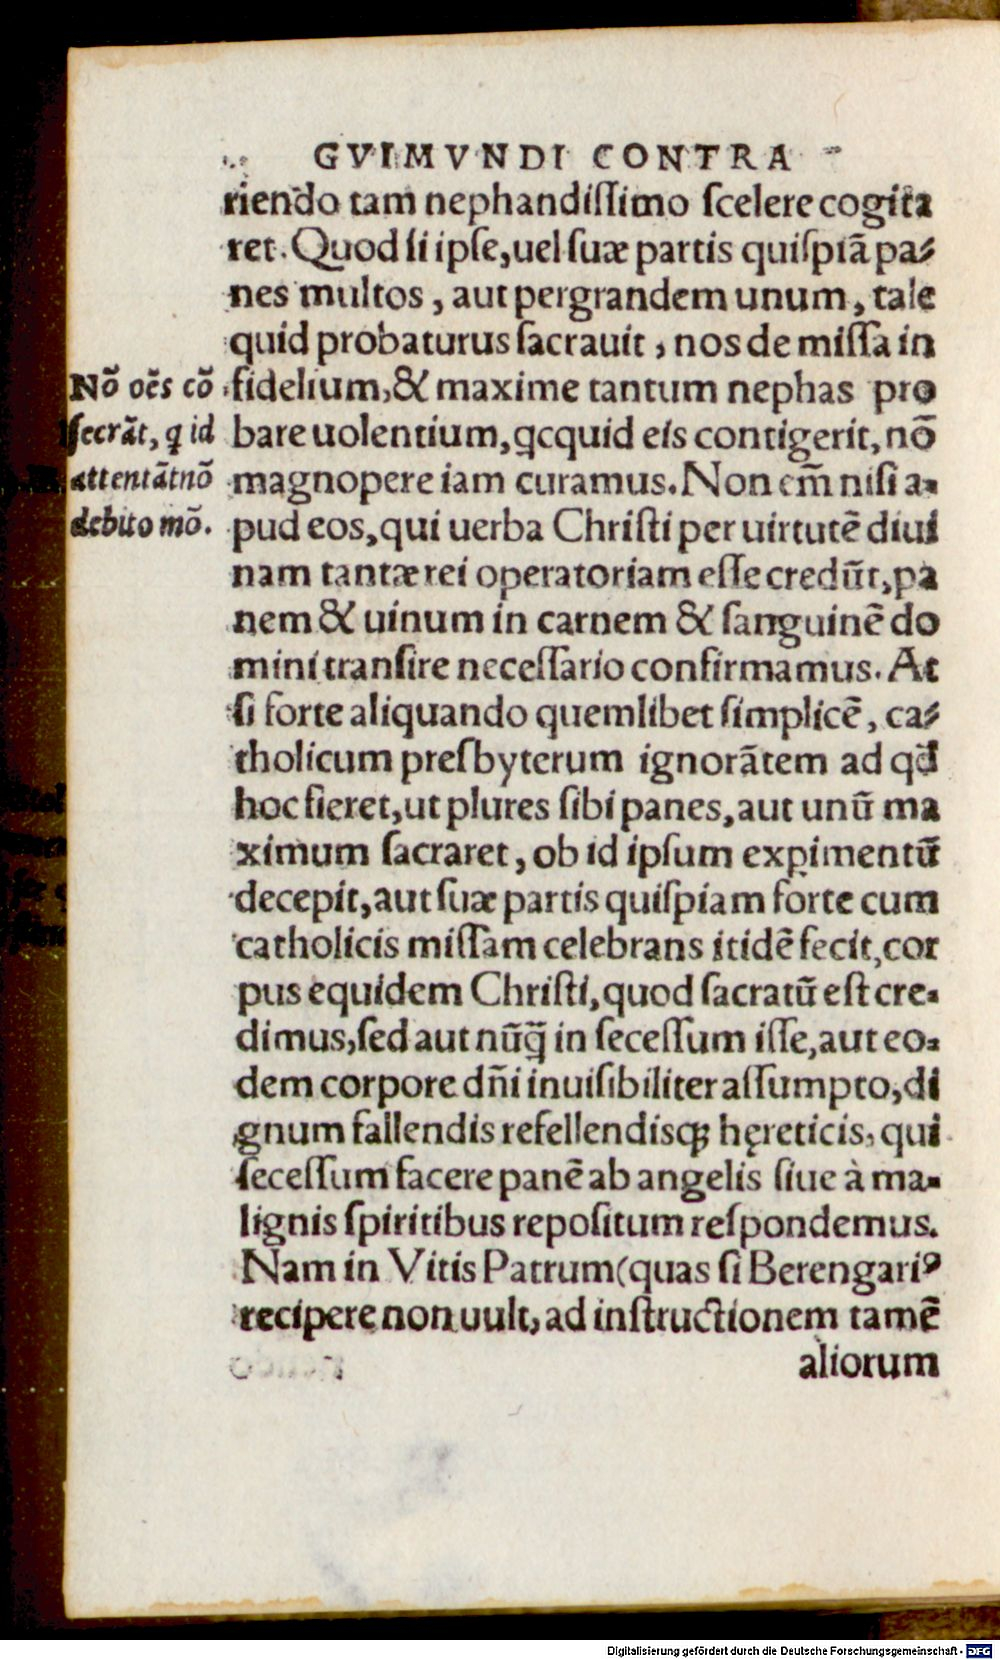 GVIMVNDI CONTRA
riendo tam nephandiſſimo ſcelere cogita
ret. Quod ſi ipſe, uel ſuæ partis quiſpiã pa⸗
nes multos, aut pergrandem unum, tale
quid probaturus ſacrauit, nos de miſſa in
fidelium, & maxime tantum nephas pro
bare uolentium, qcquid eis contigerit, nõ
magnopere iam curamus. Non em̃ niſi a⸗
pud eos, qui uerba Chriſti per uirtutẽ diui
nam tantæ rei operatoriam eſſe credũt, pa
nem & uinum in carnem & ſanguinẽ do
mini tranſire neceſſario confirmamus. At
ſi forte aliquando quemlibet ſimplicẽ, ca⸗
tholicum preſbyterum ignorãtem ad qd̃
hoc fieret, ut plures ſibi panes, aut unũ ma
ximum ſacraret, ob id ipſum exꝑimentũ
decepit, aut ſuæ partis quiſpiam forte cum
catholicis miſſam celebrans itidẽ fecit, cor
pus equidem Chriſti, quod ſacratũ eſt cre⸗
dimus, ſed aut nũq̃ in ſeceſſum iſſe, aut eo⸗
dem corpore dñi inuiſibiliter aſſumpto, di
gnum fallendis refellendisqꝫ hęreticis, qui
ſeceſſum facere panẽ ab angelis ſiue à ma⸗
lignis ſpiritibus repoſitum reſpondemus.
Nam in Vitis Patrum (quas ſi Berengariꝰ
recipere non uult, ad inſtructionem tamẽ
aliorum
Nõ oẽs cõ
ſecrãt, q id
attentãt nõ
debito mõ.
Digitalisierung gefördert durch die Deutsche Forschungsgemeinschaft - DFG